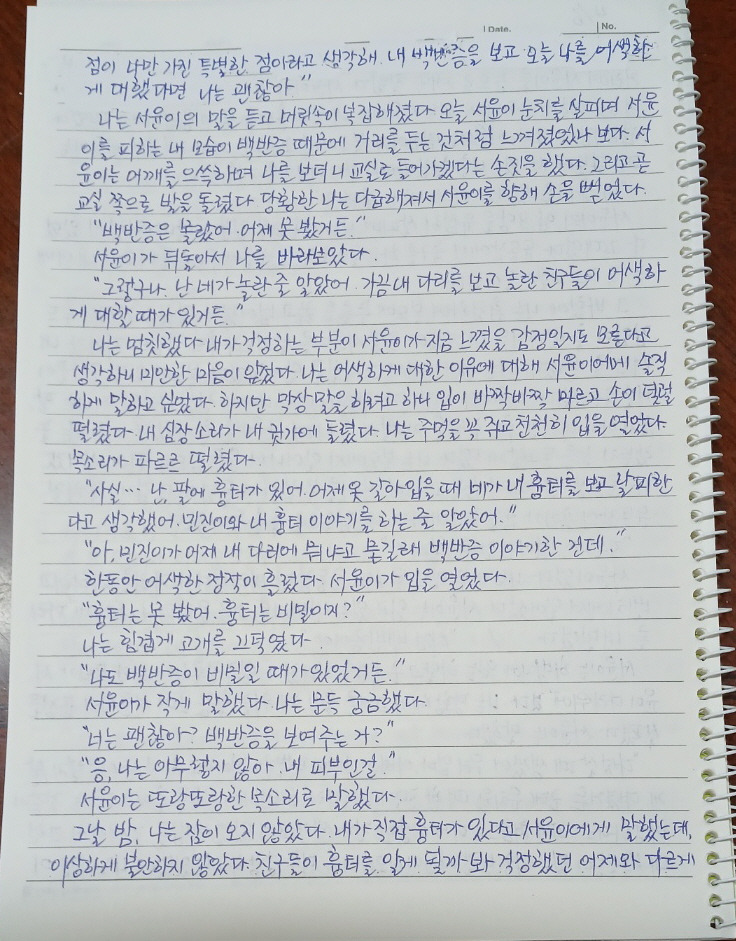 Date.
No.
점이 나만 가진 특별한 점이라고 생각해. 내 백반증을 보고 오늘 나를 어색하
게 대했다면 나는 괜찮아"
나는 서윤이의 말을 듣고 머릿속이 복잡해졌다. 오늘 서윤이 눈치를 살피며 서윤
이를 피하는 내 모습이 백반증 때문에 거리를 두는 것처럼 느껴졌었나 보다. 서
윤이는 어깨를 으쓱하며 나를 보더니 교실로 들어가겠다는 손짓을 했다. 그리고 곧
교실 쪽으로 발을 돌렸다. 당황한 나는 다급해져서 서윤이를 향해 손을 뻗었다.
"백반증은 몰랐어. 어제 못 봤거든."
서윤이가 뒤돌아서 나를 바라보았다.
"그렇구나. 난 네가 놀란 줄 알았어. 가끔 내 다리를 보고 놀란 친구들이 어색하
게 대할 때가 있거든."
나는 멈칫했다. 내가 걱정하는 부분이 서윤이가 지금 느꼈을 감정일지도 모른다고
생각하니 미안한 마음이 앞섰다. 나는 어색하게 대한 이유에 대해 서윤이에게 솔직
하게 말하고 싶었다. 하지만 막상 말을 하려고 하니 입이 바짝바짝 마르고 손이 덜덜
떨렸다. 내 심장소리가 내 귓가에 들렸다. 나는 주먹을 꼭 쥐고 천천히 입을 열었다.
목소리가 파르르 떨렸다.
"사실… 난, 팔에 흉터가 있어. 어제 옷 갈아입을 때 네가 내 흉터를 보고 날 피한
다고 생각했어. 민진이와 내 흉터 이야기를 하는 줄 알았어."
"아, 민진이가 어제 내 다리에 뭐냐고 묻길래 백반증 이야기한 건데."
한동안 어색한 정적이 흘렀다. 서윤이가 입을 열었다.
"흉터는 못 봤어. 흉터는 비밀이지?"
나는 힘겹게 고개를 끄덕였다.
"나도 백반증이 비밀일 때가 있었거든."
서윤이가 작게 말했다. 나는 문득 궁금했다.
"너는 괜찮아? 백반증을 보여주는 거?"
"응, 나는 아무렇지 않아. 내 피부인걸."
서윤이는 또랑또랑한 목소리로 말했다.
그날 밤, 나는 잠이 오지 않았다. 내가 직접 흉터가 있다고 서윤이에게 말했는데,
이상하게 불안하지 않았다. 친구들이 흉터를 알게 될까 봐 걱정했던 어제와 다르게